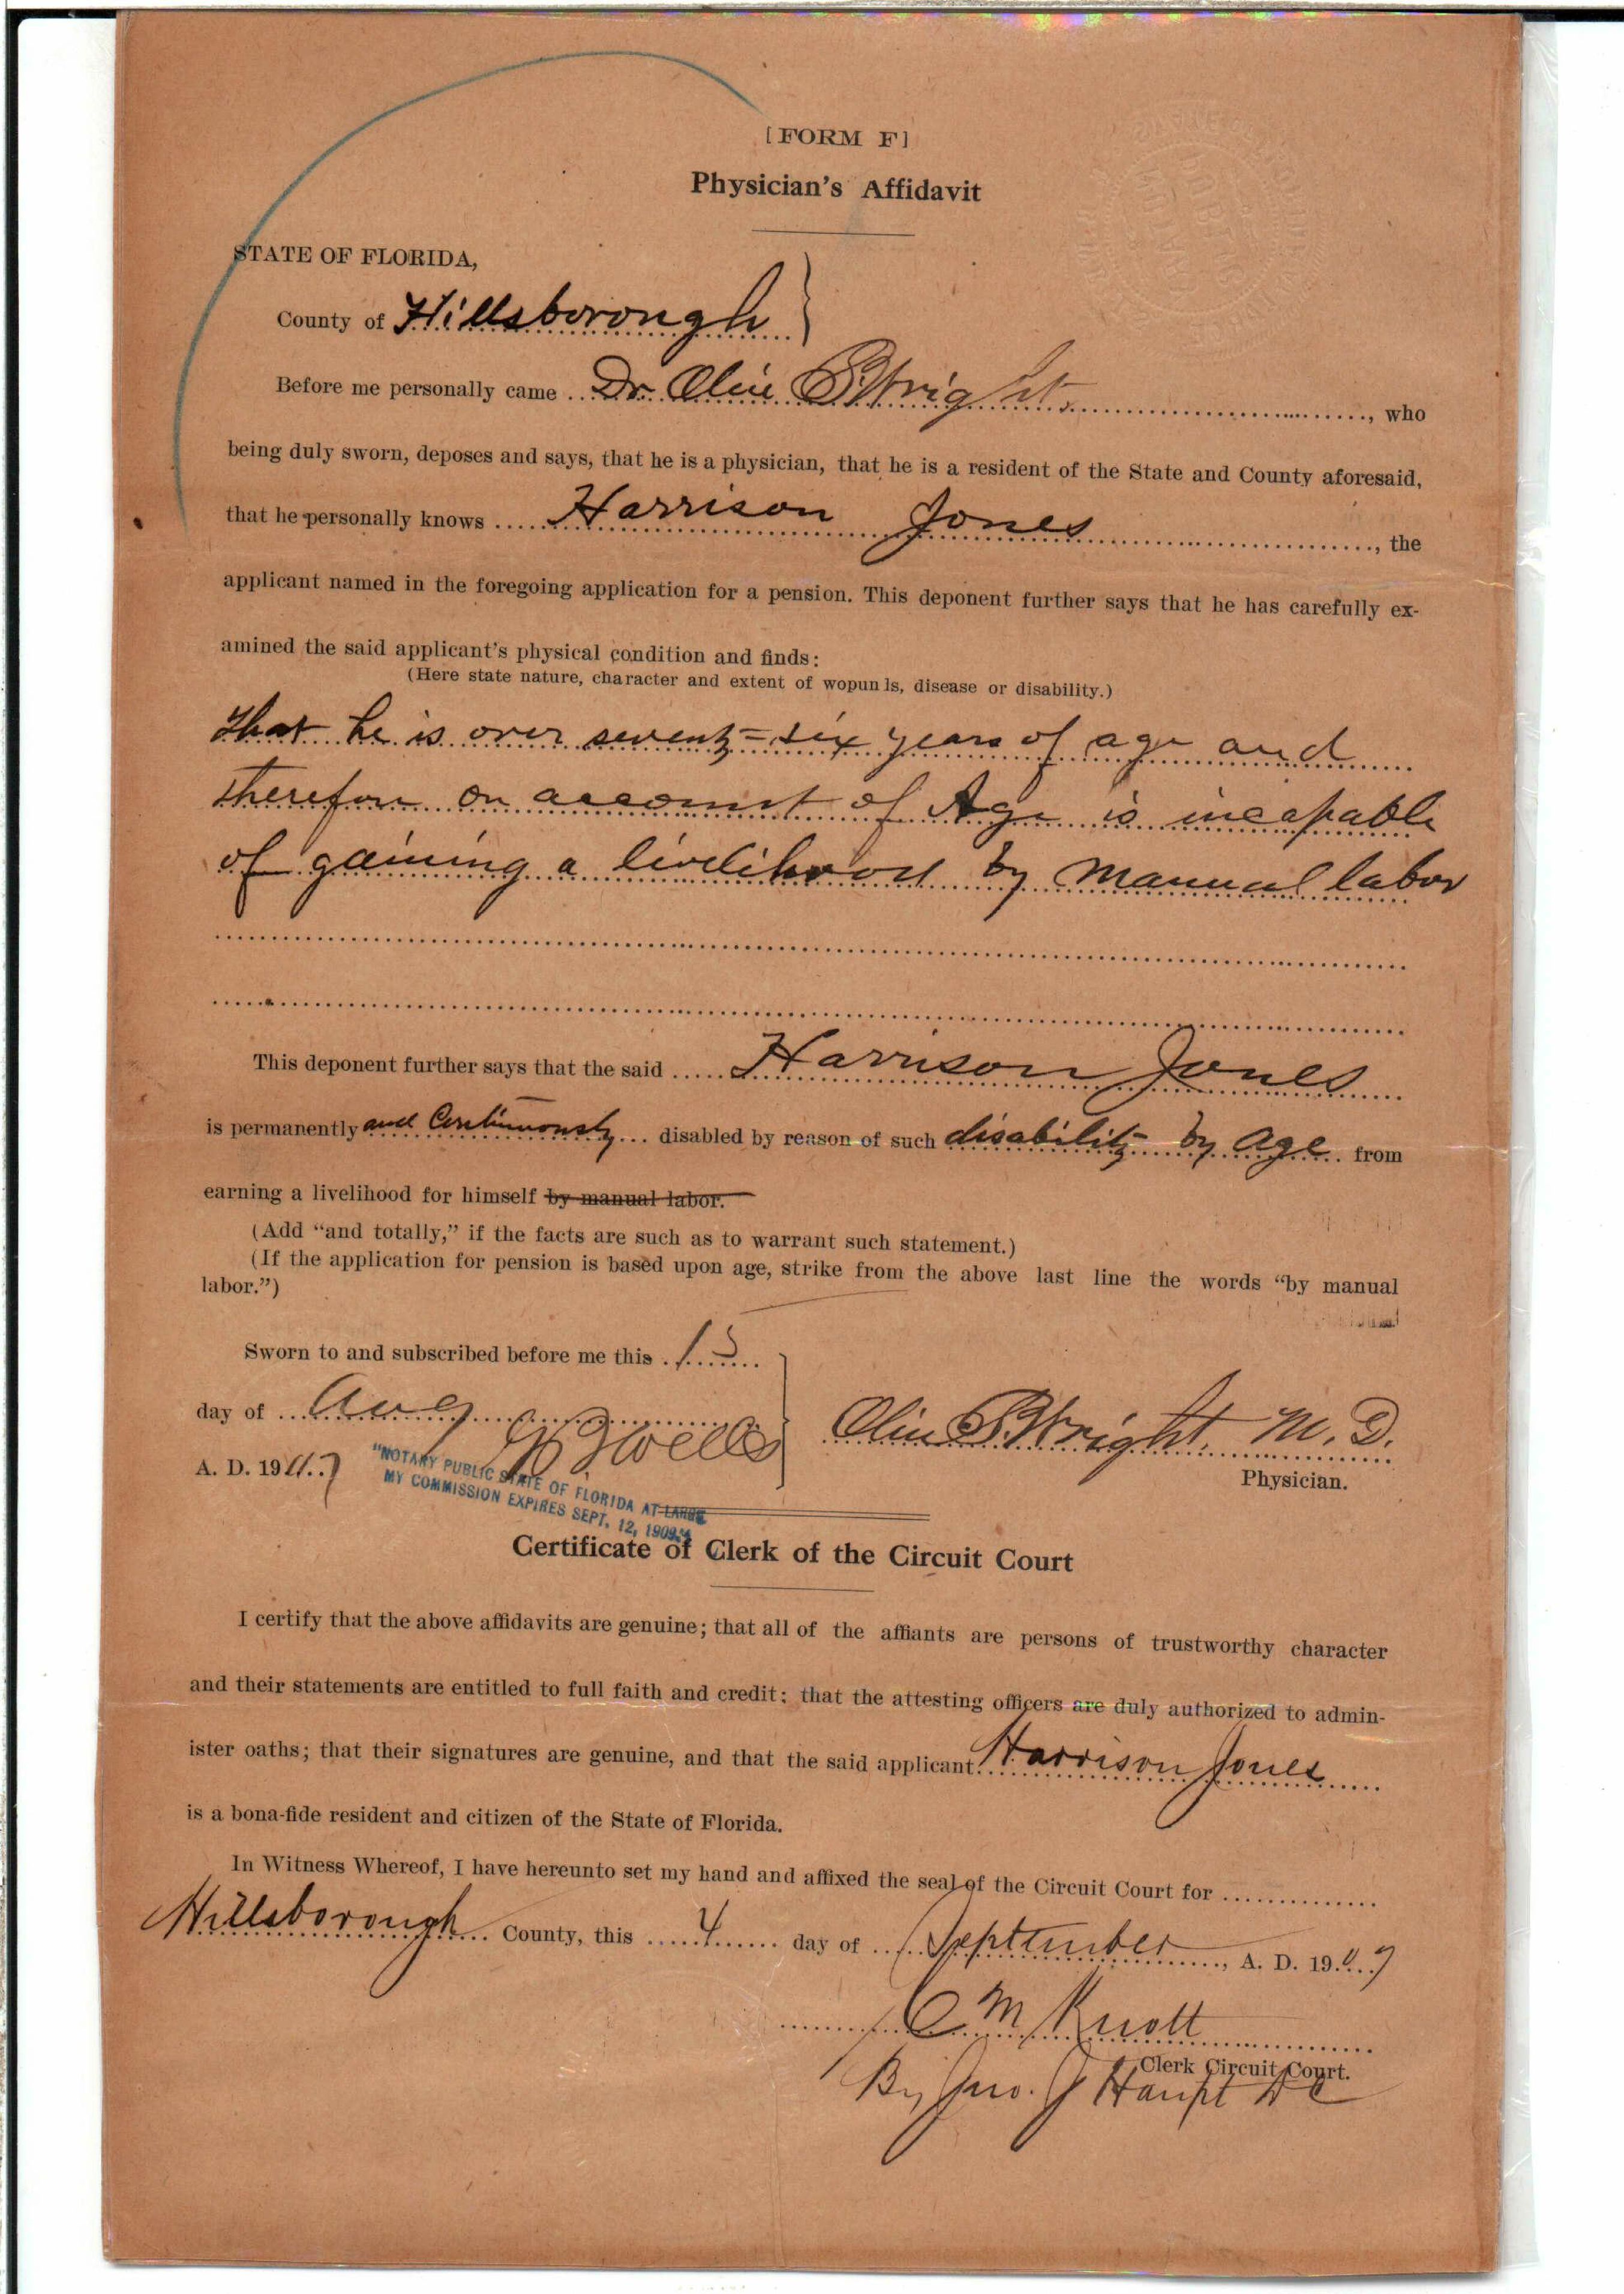 [FORM F]
Physician's Affidavit
STATE OF FLORIDA,
County of Hillsborough
Before me personally came Dr Olin S. Wright, who
being duly sworn, deposes and says, that he is a physician, that he is a resident of the State and County aforesaid,
that he personally knows Harrison Jones, the
applicant named in the foregoing application for a pension. This deponent further says that he has carefully ex-
amined the said applicant's physical condition and finds:
(Here state nature, character and extent of wopunls, disease or disability.)
that he is over seventy-six years of age and
therefore on account of Age is incapable
of gaining a livelihood by Manual labor
This deponent further says that the said Harrison Jones
is permanently and Continuously disabled by reason of such disability by age from
earning a livelihood for himself by manual labor.
(Add "and totally," if the facts are such as to warrant such statement.)
(If the application for pension is based upon age, strike from the above last line the words "by manual
labor.")
Sworn to and subscribed before me this 15
day of Aug
Wells
Olin S. Wright, M. D.
A. D. 1907
Physician.
"NOTARY PUBLIC STATE OF FLORIDA AT LARGE
MY COMMISSION EXPIRES SEPT. 12, 1909."
Certificate of Clerk of the Circuit Court
I certify that the above affidavits are genuine; that all of the affiants are persons of trustworthy character
and their statements are entitled to full faith and credit; that the attesting officers are duly authorized to admin-
ister oaths; that their signatures are genuine, and that the said applicant Harrison Jones
is a bona-fide resident and citizen of the State of Florida.
In Witness Whereof, I have hereunto set my hand and affixed the seal of the Circuit Court for
Hillsborough County, this 4 day of September, A. D. 1907
C M Knott
Clerk Circuit Court.
By Jno. J Haupt D C